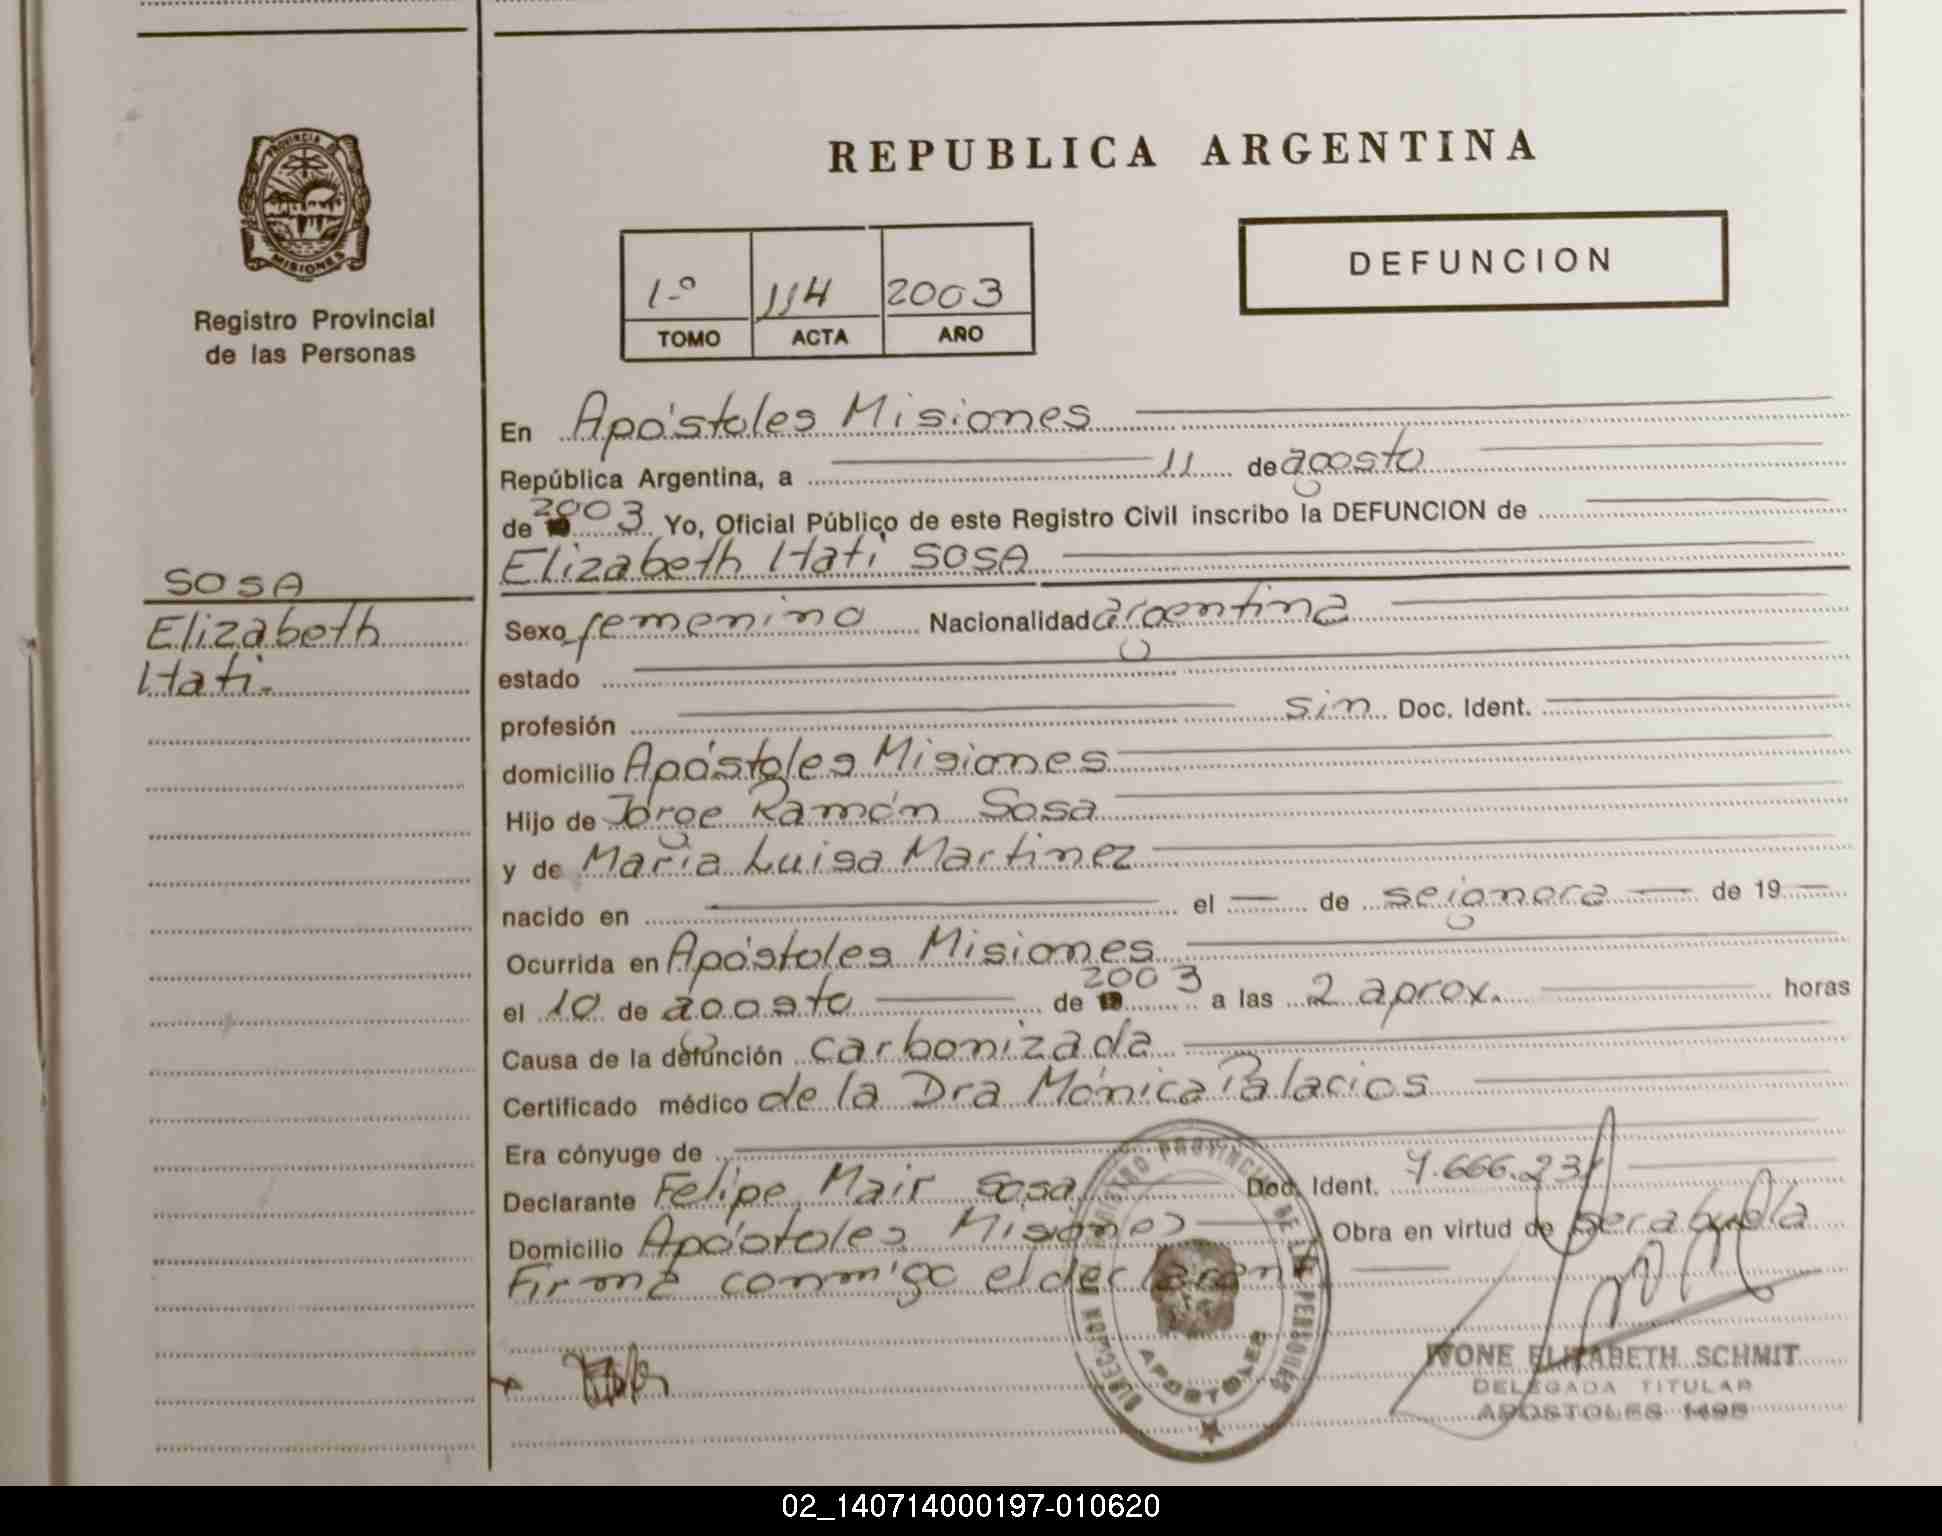 PROVINCIA DE
MISIONES
Registro Provincial
de las Personas
SOSA
Elizabeth
Itatí.
REPUBLICA ARGENTINA
1º 114 2003
TOMO ACTA AÑO
DEFUNCION
En Apóstoles Misiones
República Argentina, a 11 de agosto
de 2003 Yo, Oficial Público de este Registro Civil inscribo la DEFUNCION de
Elizabeth Itatí SOSA
Sexo femenino Nacionalidad argentina
estado
profesión sin Doc. Ident.
domicilio Apóstoles Misiones
Hijo de Jorge Ramón Sosa
y de María Luisa Martinez
nacido en el — de seignora — de 19 —
Ocurrida en Apóstoles Misiones
el 10 de agosto de 2003 a las 2 aprox. horas
Causa de la defunción carbonizada
Certificado médico de la Dra Mónica Palacios
Era cónyuge de
Declarante Felipe Mair Sosa Doc. Ident.
Domicilio Apóstoles Misiones Obra en virtud de ser abuela
Firma conmigo el declarante
REGISTRO PROVINCIAL DE LAS PERSONAS
DIRECCION
APOSTOLES
IVONE ELIZABETH SCHMIT
DELEGADA TITULAR
APOSTOLES
02_140714000197-010620